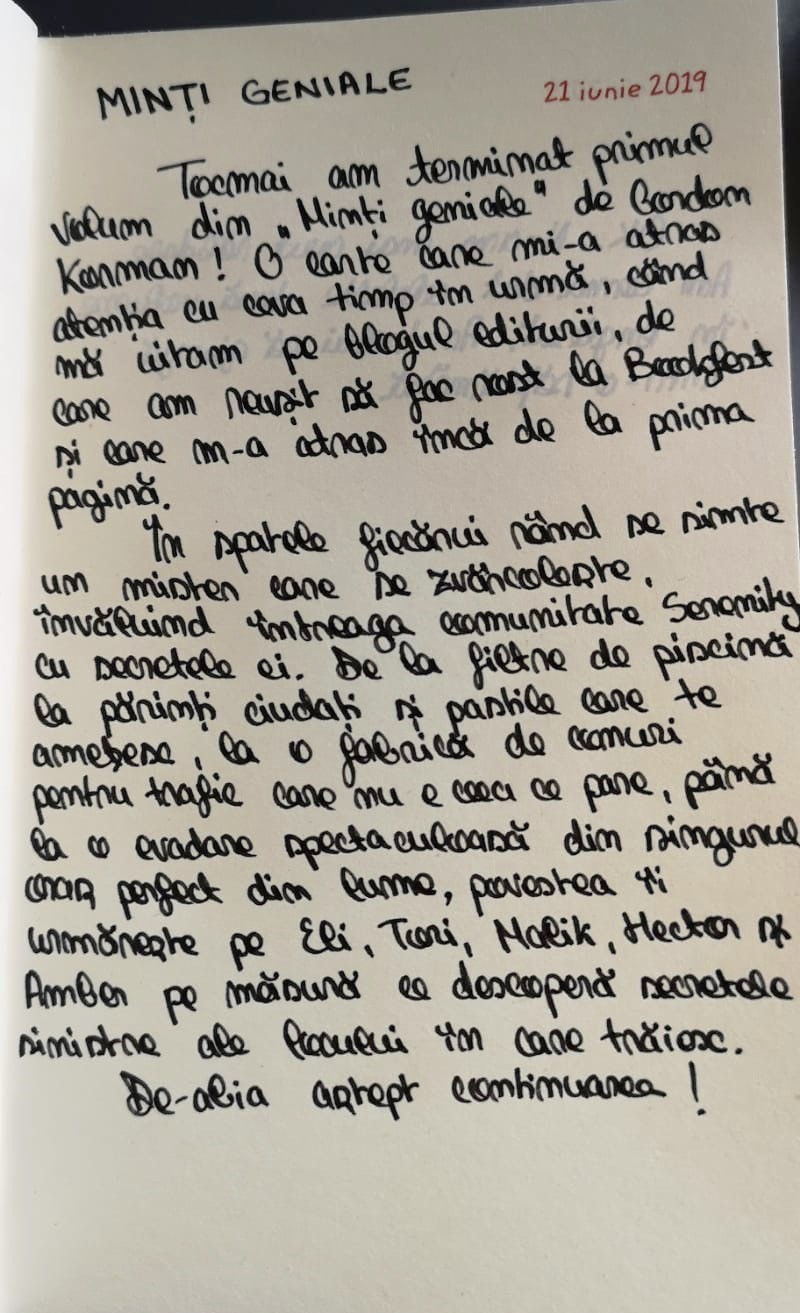 MINȚI GENIALE
21 iunie 2019
Tocmai am terminat primul
volum din „Minți geniale" de Gordom
Korman! O carte care mi-a atras
atenția cu ceva timp în urmă, când
mă uitam pe blogul editurii, de
care am reușit să fac rost la Bookfest
și care m-a atras încă de la prima
pagină.
În spatele fiecărui rând se simte
un mister care se zvârcolește,
învăluind întreaga comunitate Serenity
cu secretele ei. De la filtre de piscină
la părinți ciudați și pastile care te
amețesc, la o fabrică de conuri
pentru trafic care nu e ceea ce pare, până
la o evadare spectaculoasă din singurul
oraș perfect din lume, povestea îi
urmărește pe Eli, Tori, Malik, Hector și
Amber pe măsură ce descoperă secretele
sinistre ale locului în care trăiesc.
De-abia aștept continuarea!